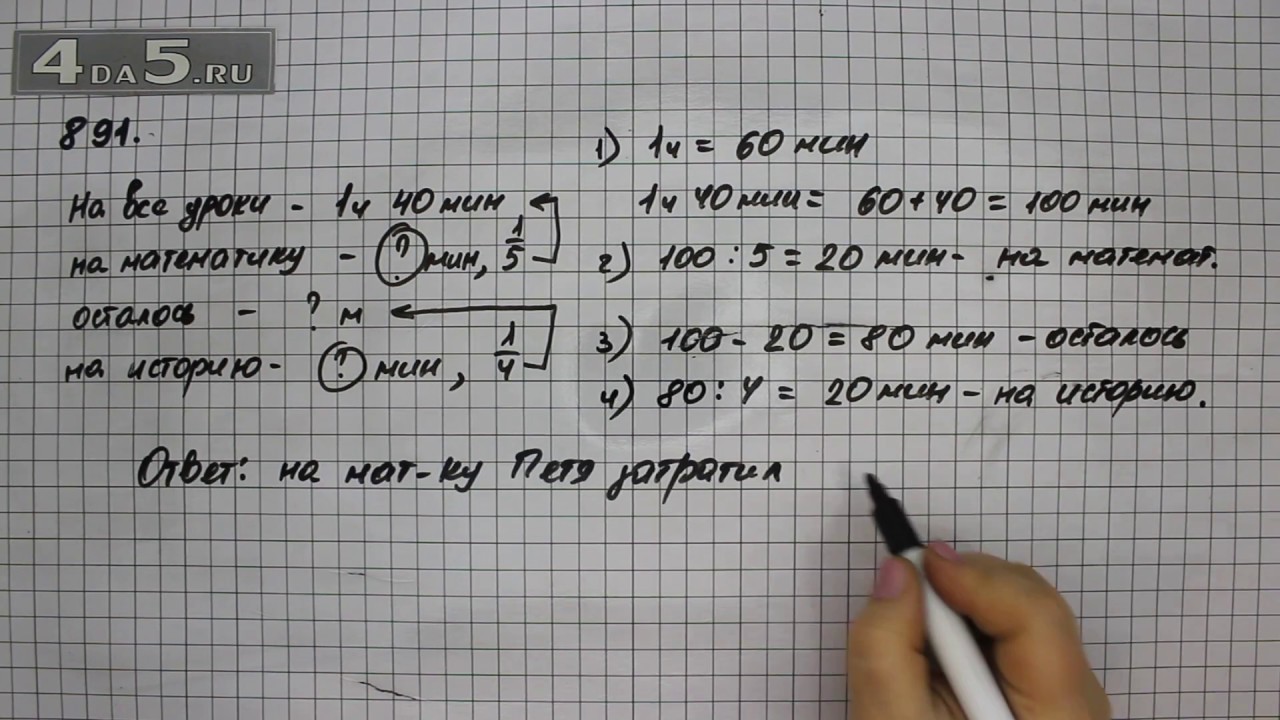 4DA5.RU
891.
На все уроки - 1ч 40 мин
на математику - ? мин, 1/5
осталось - ? м
на историю - ? мин, 1/4
1) 1ч = 60 мин
1ч 40 мин = 60 + 40 = 100 мин
2) 100 : 5 = 20 мин - на математ.
3) 100 - 20 = 80 мин - осталось
4) 80 : 4 = 20 мин - на историю.
Ответ: на мат-ку Петя затратил